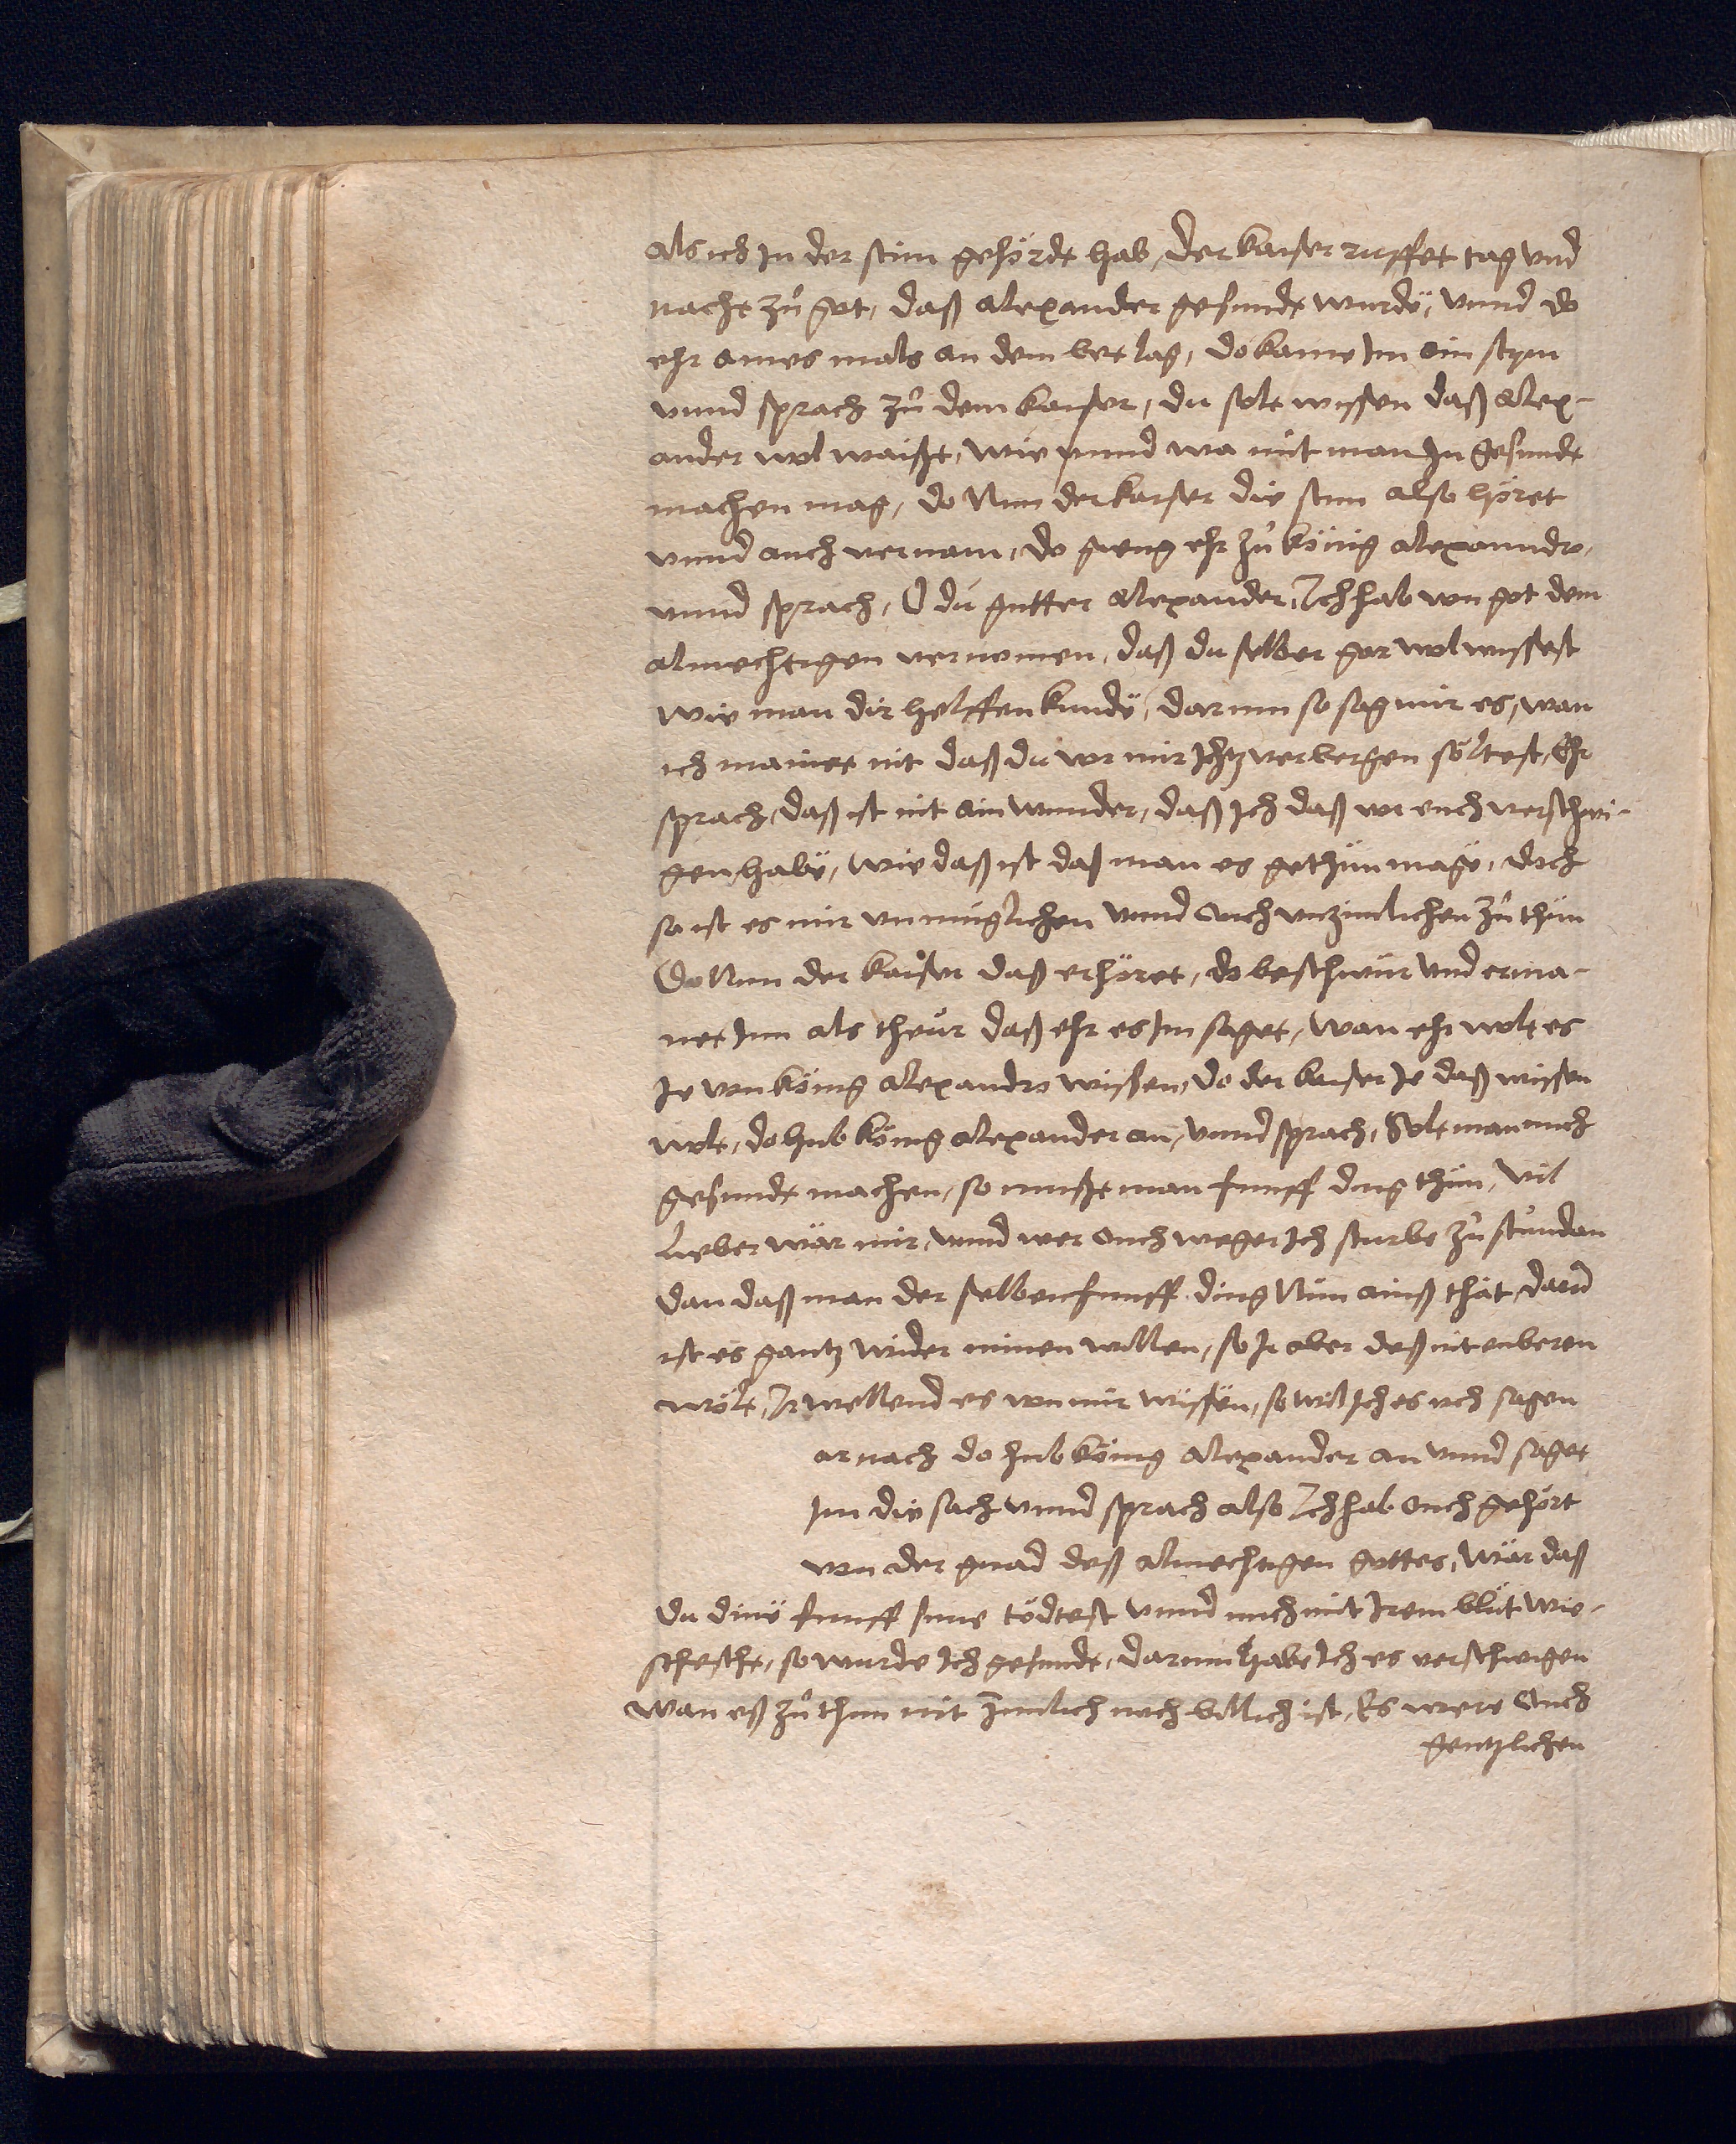 als ich In der stim gehörde hab, der kaiser ruffet tag vnd
nacht zů got, daß alexander gesundt wurdë, vnnd do
ehr aines mals an dem bet lag, do kame Im ain stym
vnnd sprach zů dem kaiser, du solt wissen daß Alex-
ander wol waißt, wie vnnd wa mit man In gesundt
machen mag, do Nun der kaiser die stim also höret
vnnd auch vernam, do gieng ehr zů könig alexanndro,
vnnd sprach, O du gutter Alexander, Ich hab von got dem
almechtigen vernomen, daß du selber gar wol wissest
wie man dir helffen kundë, darum so sag mir es, wan
ich mainet nit daß du vor mir Ichtz verbergen söltest, Ehr
sprach, daß ist nit ain wunder, daß Ich daß vor euch verschwi-
gen habë, wie daß ist daß man es gethün magë, doch
so ist es mir vnmüglichen vnnd Auch vnzimlichen zů thün
Do Nun der kaiser daß erhöret, do beschwür vnd erma-
net Inn als theür daß ehr es Im saget, wan ehr wolt es
Je von könig Alexandro wissen, do der kaiser Je daß wissen
wolt, do hub könig alexander an, vnnd sprach, Solt man mich
gesundt machen, so müßt man funff ding thün, Vil
Lieber wär mir, vnnd wer Auch weger Ich sturbe zů stunden
dan daß man der selben funff ding Nün ainß thät, darum
ist es gantz wider minen willen, so Ir aber deß nit enberen
wölt, Ir wellend es von mir wissën, so wil Ich es üch sagen
arnach do hub könig Alexander an vnnd saget
Im die sach vnnd sprach also Ich hab Auch gehört
von der gnad deß Almechtigen gottes, Wär daß
du dinë funff süne tödtest vnnd mich mit Irem blüt wie-
schest, so wurde Ich gesundt, darum habe Ich es verschwigen
wan eß zů thun nit zimlich noch billich ist, Es were Auch
gentzlichen